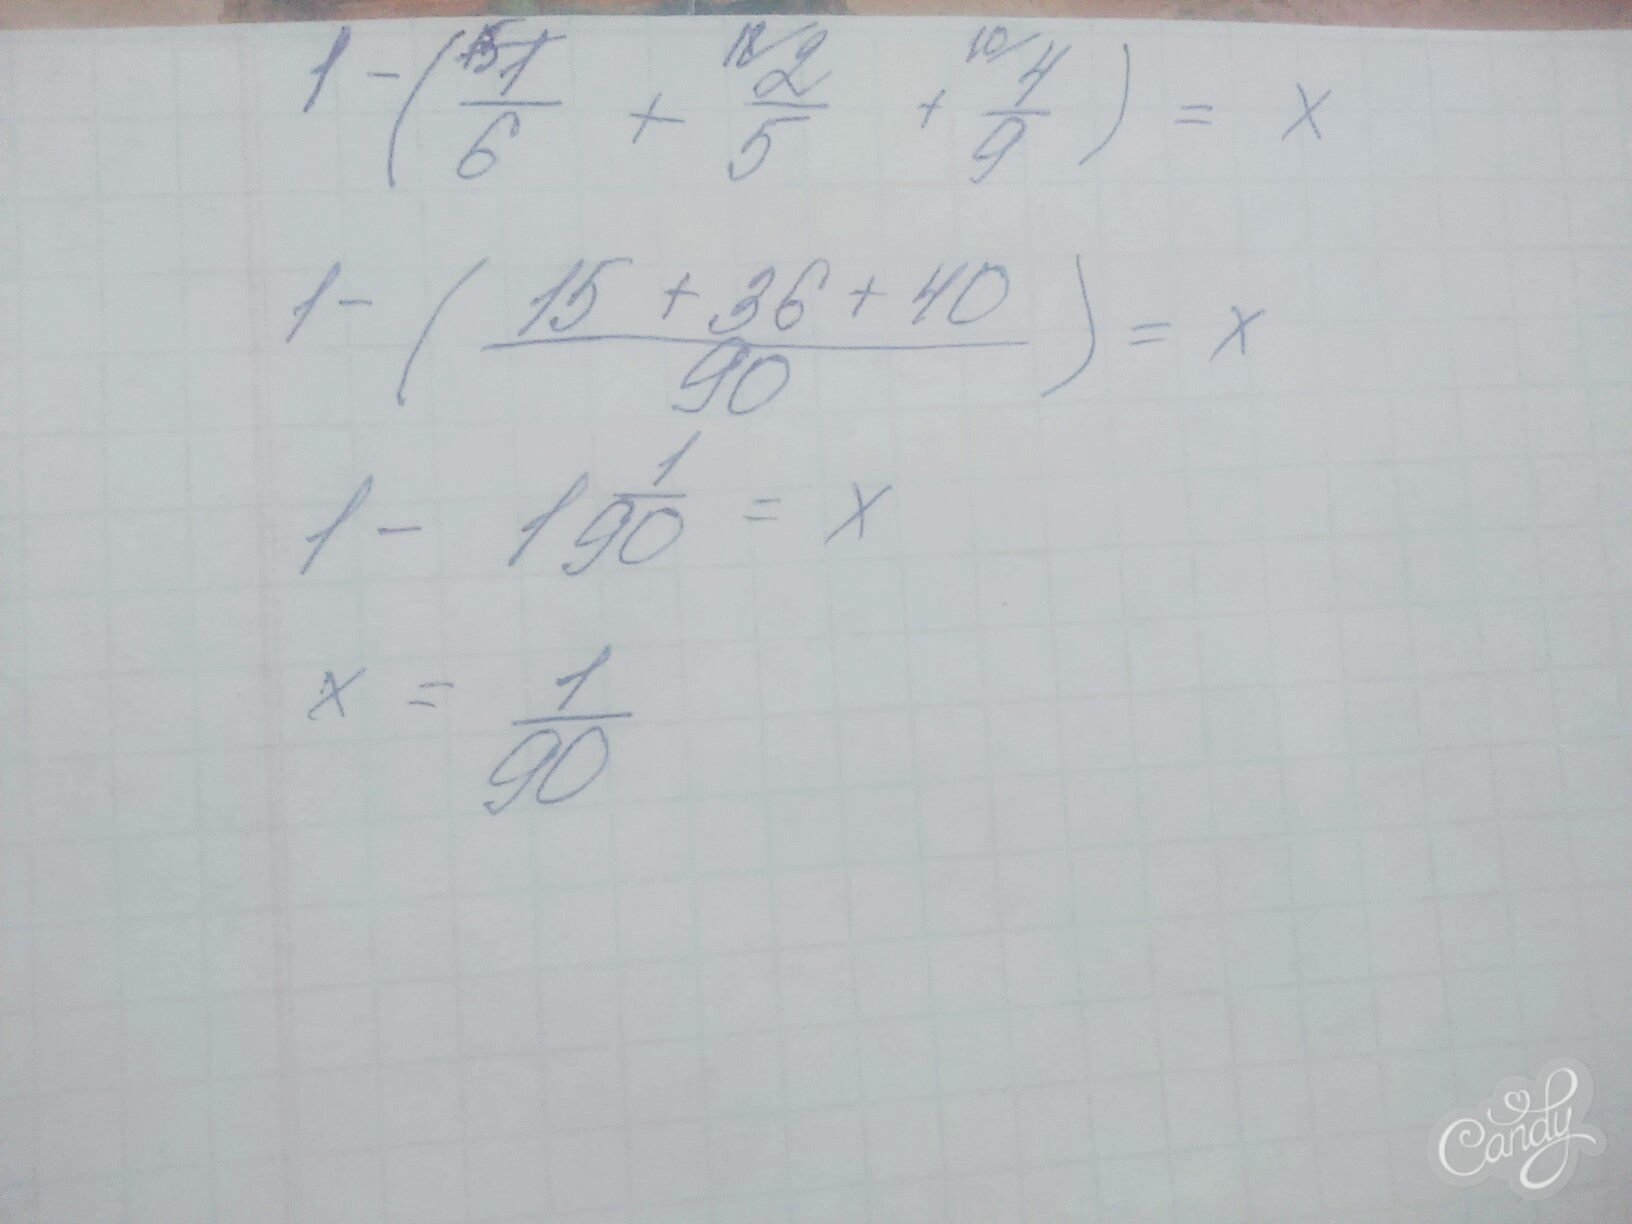 1 - ( 15/ 1/6 + 18/ 2/5 + 10/ 4/9 ) = x
1 - ( (15 + 36 + 40)/90 ) = x
1 - 1 1/90 = x
x = 1/90
Candy